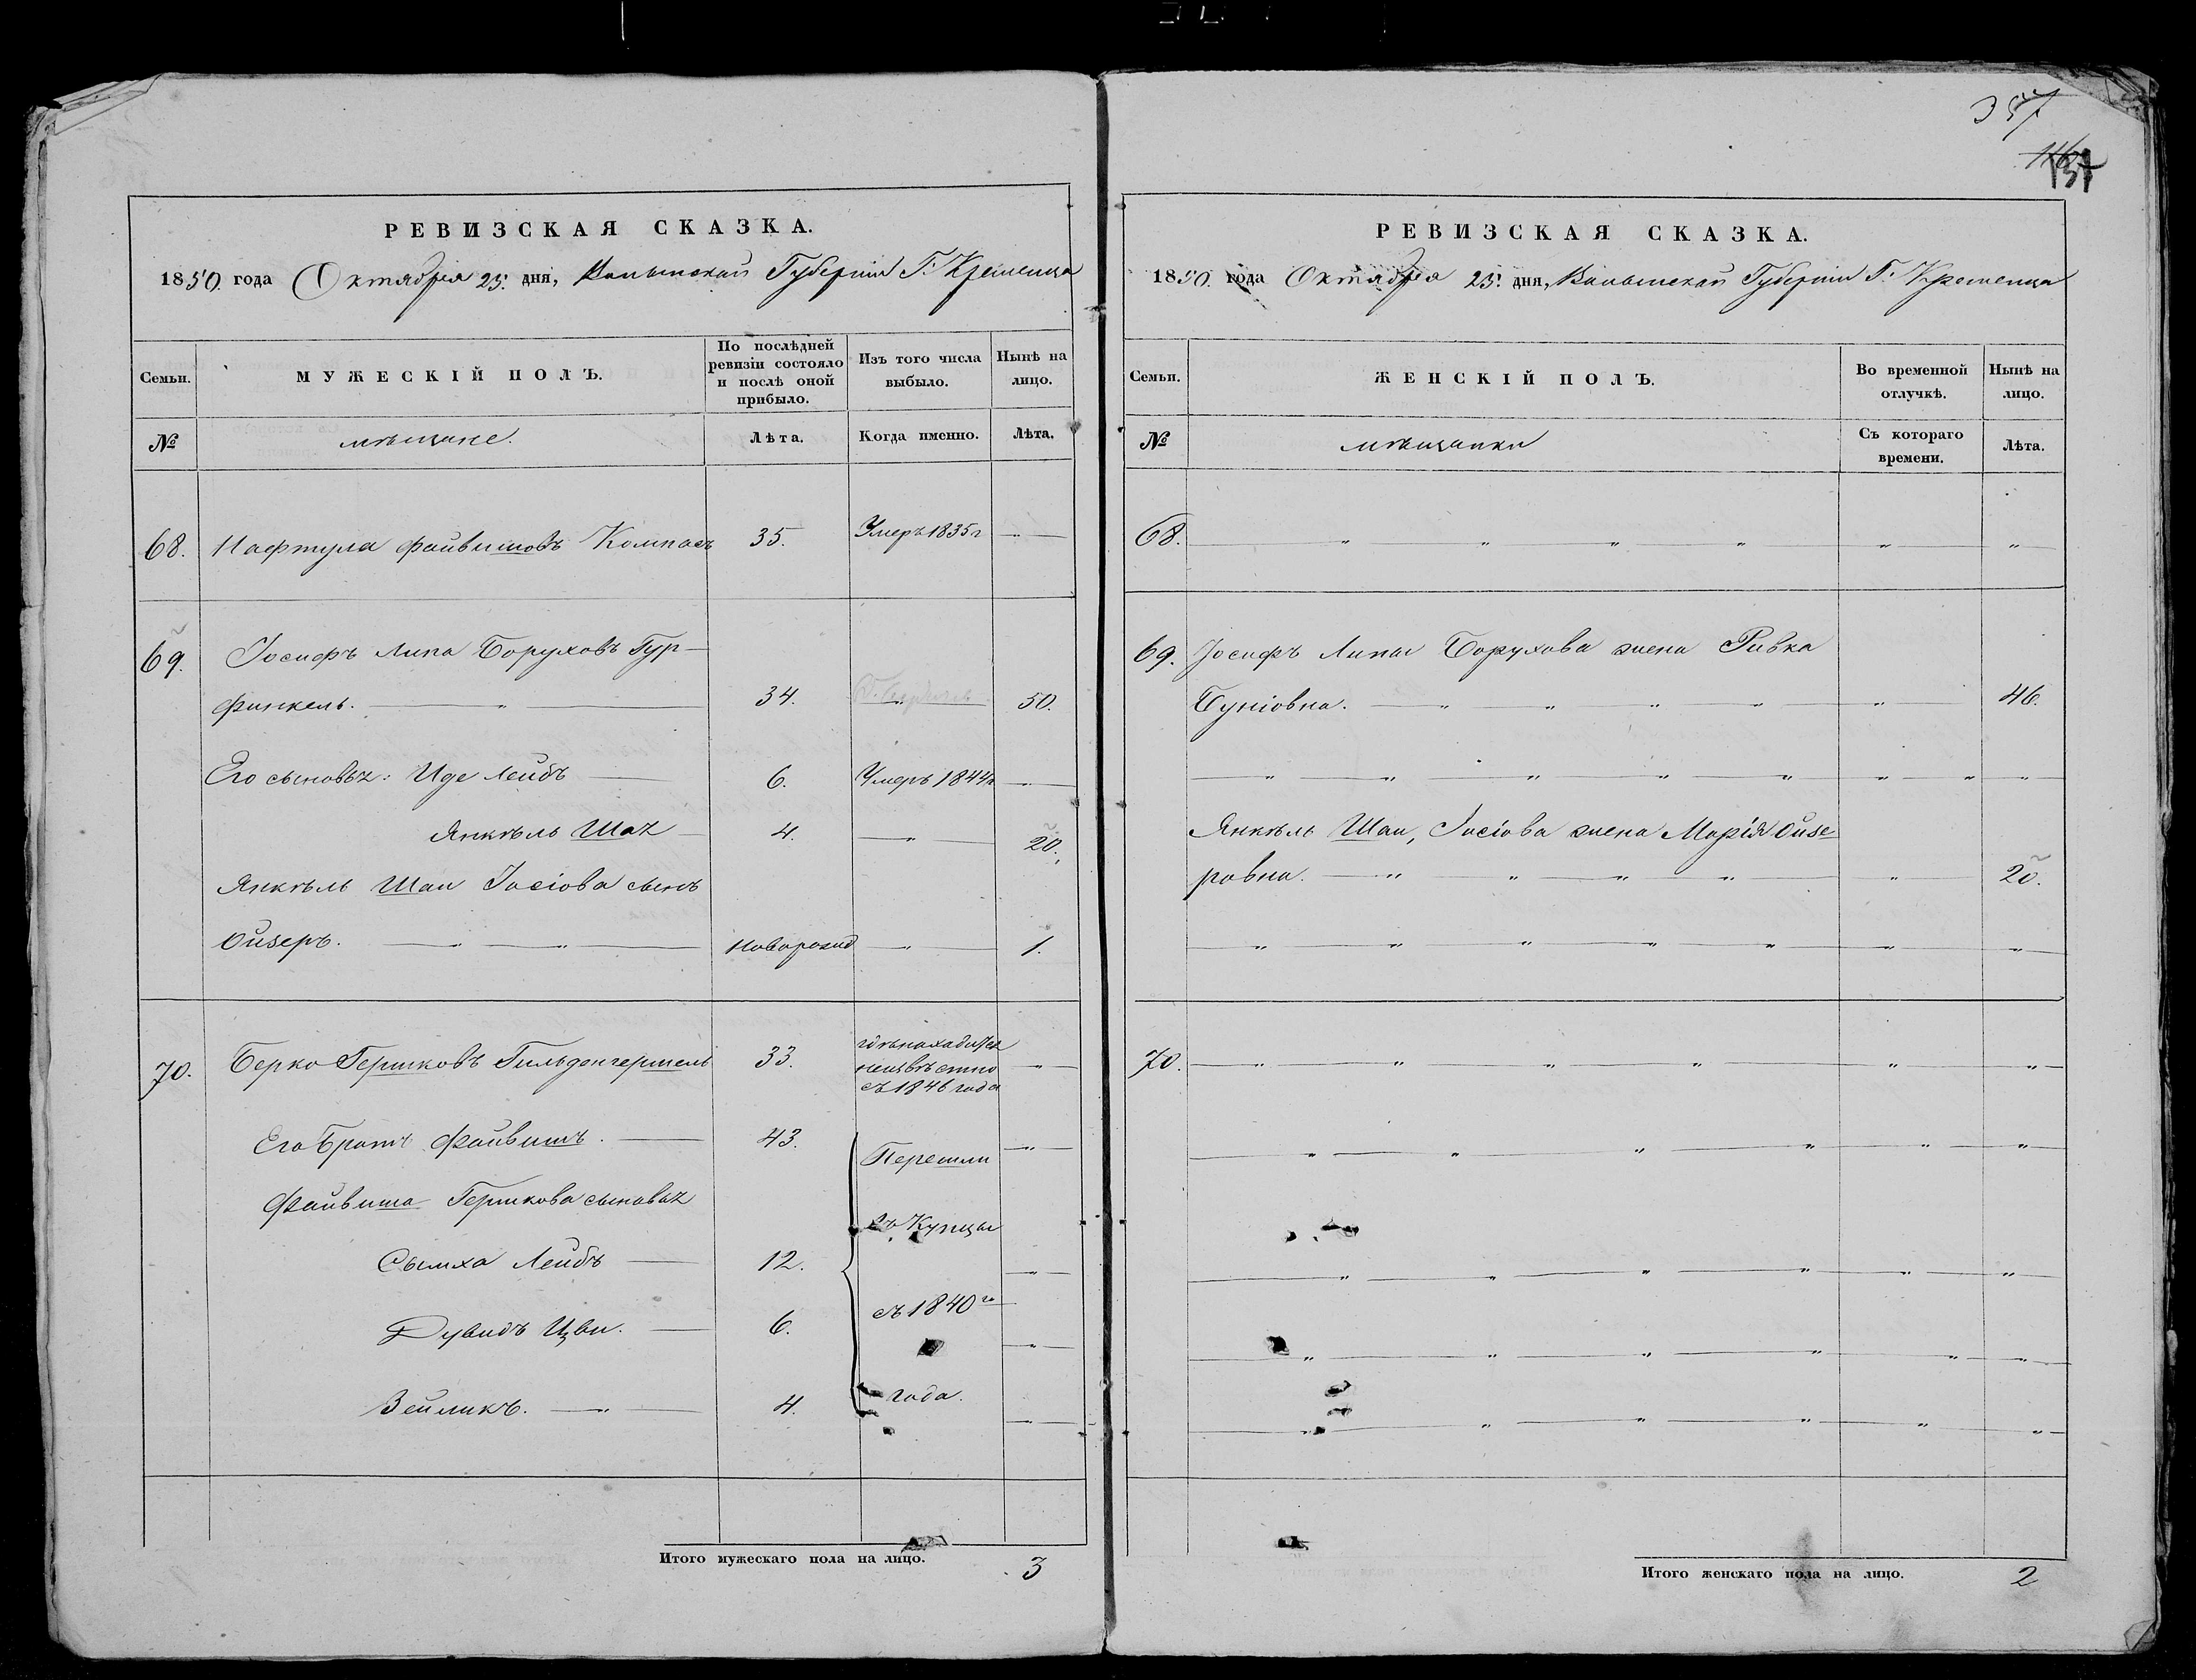 357
137
РЕВИЗСКАЯ СКАЗКА.
1850. года Октября 25. дня, Волынской Губерніи Г. Кременца
Семьи.
МУЖЕСКІЙ ПОЛЪ.
По послѣдней ревизіи состояло и послѣ оной прибыло.
Изъ того числа выбыло.
Нынѣ на лицо.
№
мѣщане.
Лѣта.
Когда именно.
Лѣта.
68. Нафтула Файвишовъ Компасъ 35. Умеръ 1835 г
69. Іосифъ Липа Боруховъ Гур-
финкель. — " — 34. 50.
Его сыновья: Иде Лейбъ — 6. Умеръ 1844 г
Янкѣль Шая — 4. — " — 20.
Янкѣль Шаи Іосіова сынъ
Ойзеръ. — " — " — новорожд — " — 1.
70. Берко Гершковъ Гильденгершель 33. гдѣ находится
неизвѣстно
съ 1846 года — " —
Его братъ Файвишъ. — 43. Перешли — " —
Файвиша Гершкова сыновья
въ Купцы
Сымха Лейбъ — 12. — " —
съ 1840 го
Дувидъ Цви. — 6. — " —
Зейликъ. — " — 4. года. — " —
Итого мужескаго пола на лицо. 3
РЕВИЗСКАЯ СКАЗКА.
1850. года Октября 25. дня, Волынской Губерніи Г. Кременца
Семьи.
ЖЕНСКІЙ ПОЛЪ.
Во временной отлучкѣ.
Нынѣ на лицо.
№
мѣщанки
Съ котораго времени.
Лѣта.
68. — " — " — " — " — " — " —
69. Іосифъ Липы Борухова жена Ривка
Буніовна. — " — " — " — " — " — 46.
— " — " — " — " — " — " — " — " —
Янкѣль Шаи, Іосіова жена Марія Ойзе
ровна. — " — " — " — " — " — 20.
— " — " — " — " — " — " — " —
70. — " — " — " — " — " — " — " —
— " — " — " — " — " — " —
— " — " — " — " — " — " —
— " — " — " — " — " — " —
— " — " — " — " — " — " —
Итого женскаго пола на лицо. 2